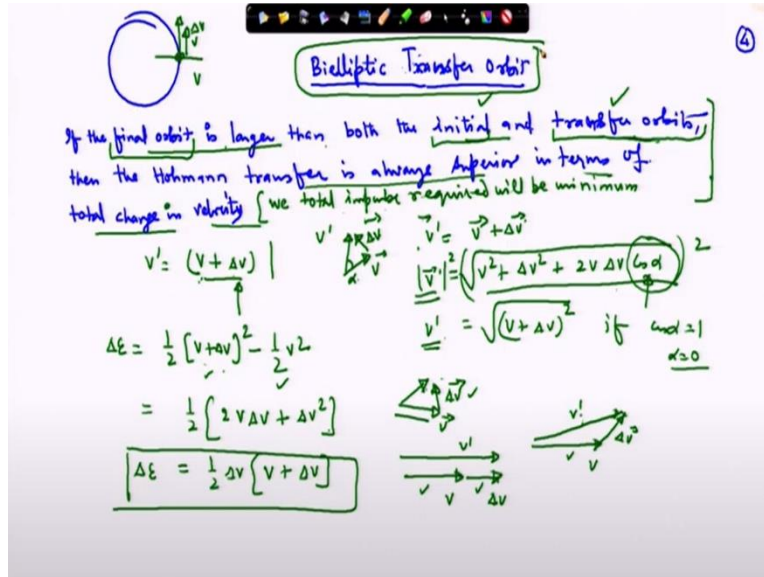 ④
ΔV
V
V
Bielliptic Transfer orbit
If the final orbit, is larger than both the initial and transfer orbits,
then the Hohmann transfer is always superior in terms of
total change in velocity [we total impulse required will be minimum
V' = (V + ΔV)
V' ΔV⃗ V⃗ α
V⃗' = V⃗ + ΔV⃗
|V⃗'|² = (√V² + ΔV² + 2V ΔV Cosα)²
V' = √(V + ΔV)² if cosα = 1
α = 0
Δε = ½ [V+ΔV]² - ½ V²
= ½ [2VΔV + ΔV²]
Δε = ½ ΔV [V + ΔV]
ΔV⃗
V⃗
V'
V ΔV
V'
V ΔV⃗